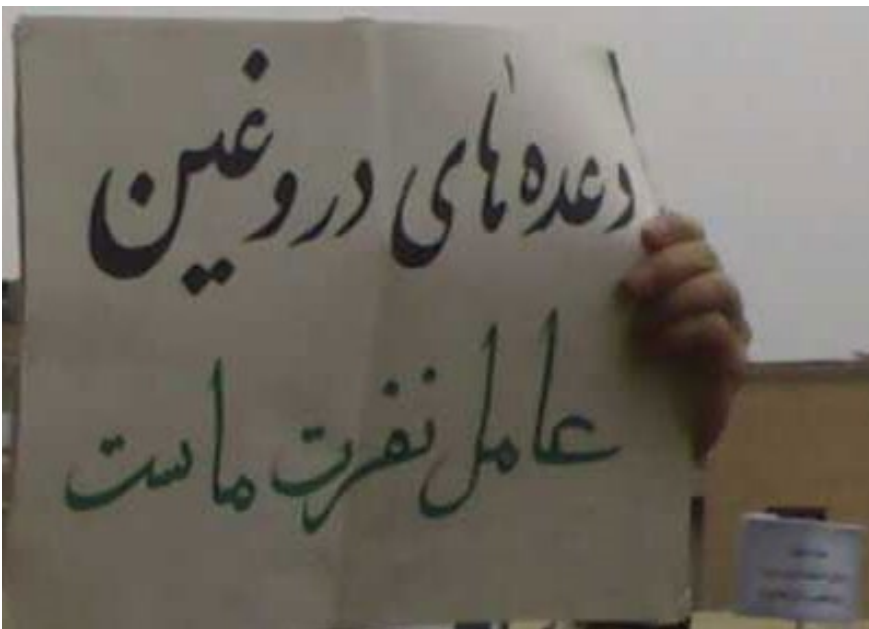 وعده‌های دروغین
عامل نفرت ماست